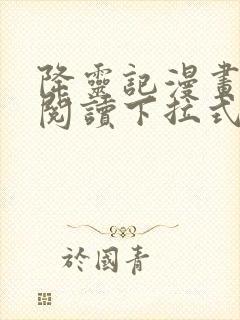 降靈記漫畫
閱讀下拉式
於國青